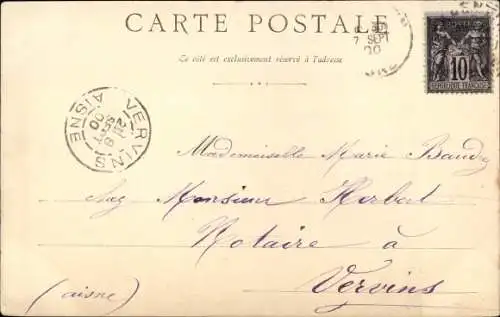 CARTE POSTALE
Ce côté est exclusivement réservé à l'adresse
7 SEPT
00
POSTE
10
REPUBLIQUE FRANÇAISE
VERVINS
8 SEPT
00
AISNE
Mademoiselle Marie Baudry
Chez Monsieur Herbert
Notaire à
Vervins
(aisne)